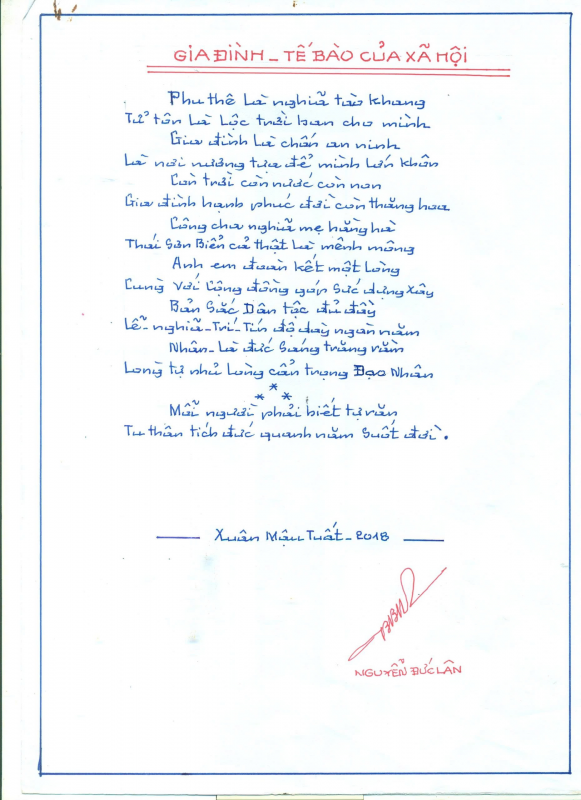 GIA ĐÌNH – TẾ BÀO CỦA XÃ HỘI
Phu thê là nghĩa tào khang
Tử tôn là Lộc trời ban cho mình
Gia đình là chốn an ninh
Là nơi nương tựa để mình lớn khôn
Còn trời còn nước còn non
Gia đình hạnh phúc đời còn thăng hoa
Công cha nghĩa mẹ hằng hà
Thái Sơn Biển cả thật là mênh mông
Anh em đoàn kết một lòng
Cùng với cộng đồng góp sức dựng xây
Bản Sắc Dân tộc đủ đầy
Lễ-nghĩa-Trí-Tín độ dày ngàn năm
Nhân-Là đức sáng trăng rằm
Lòng tự nhủ lòng cẩn trọng Đạo Nhân
*
* *
Mỗi người phải biết tự răn
Tu thân tích đức quanh năm suốt đời.
Xuân Mậu Tuất-2018
NGUYỄN ĐỨC LÂN